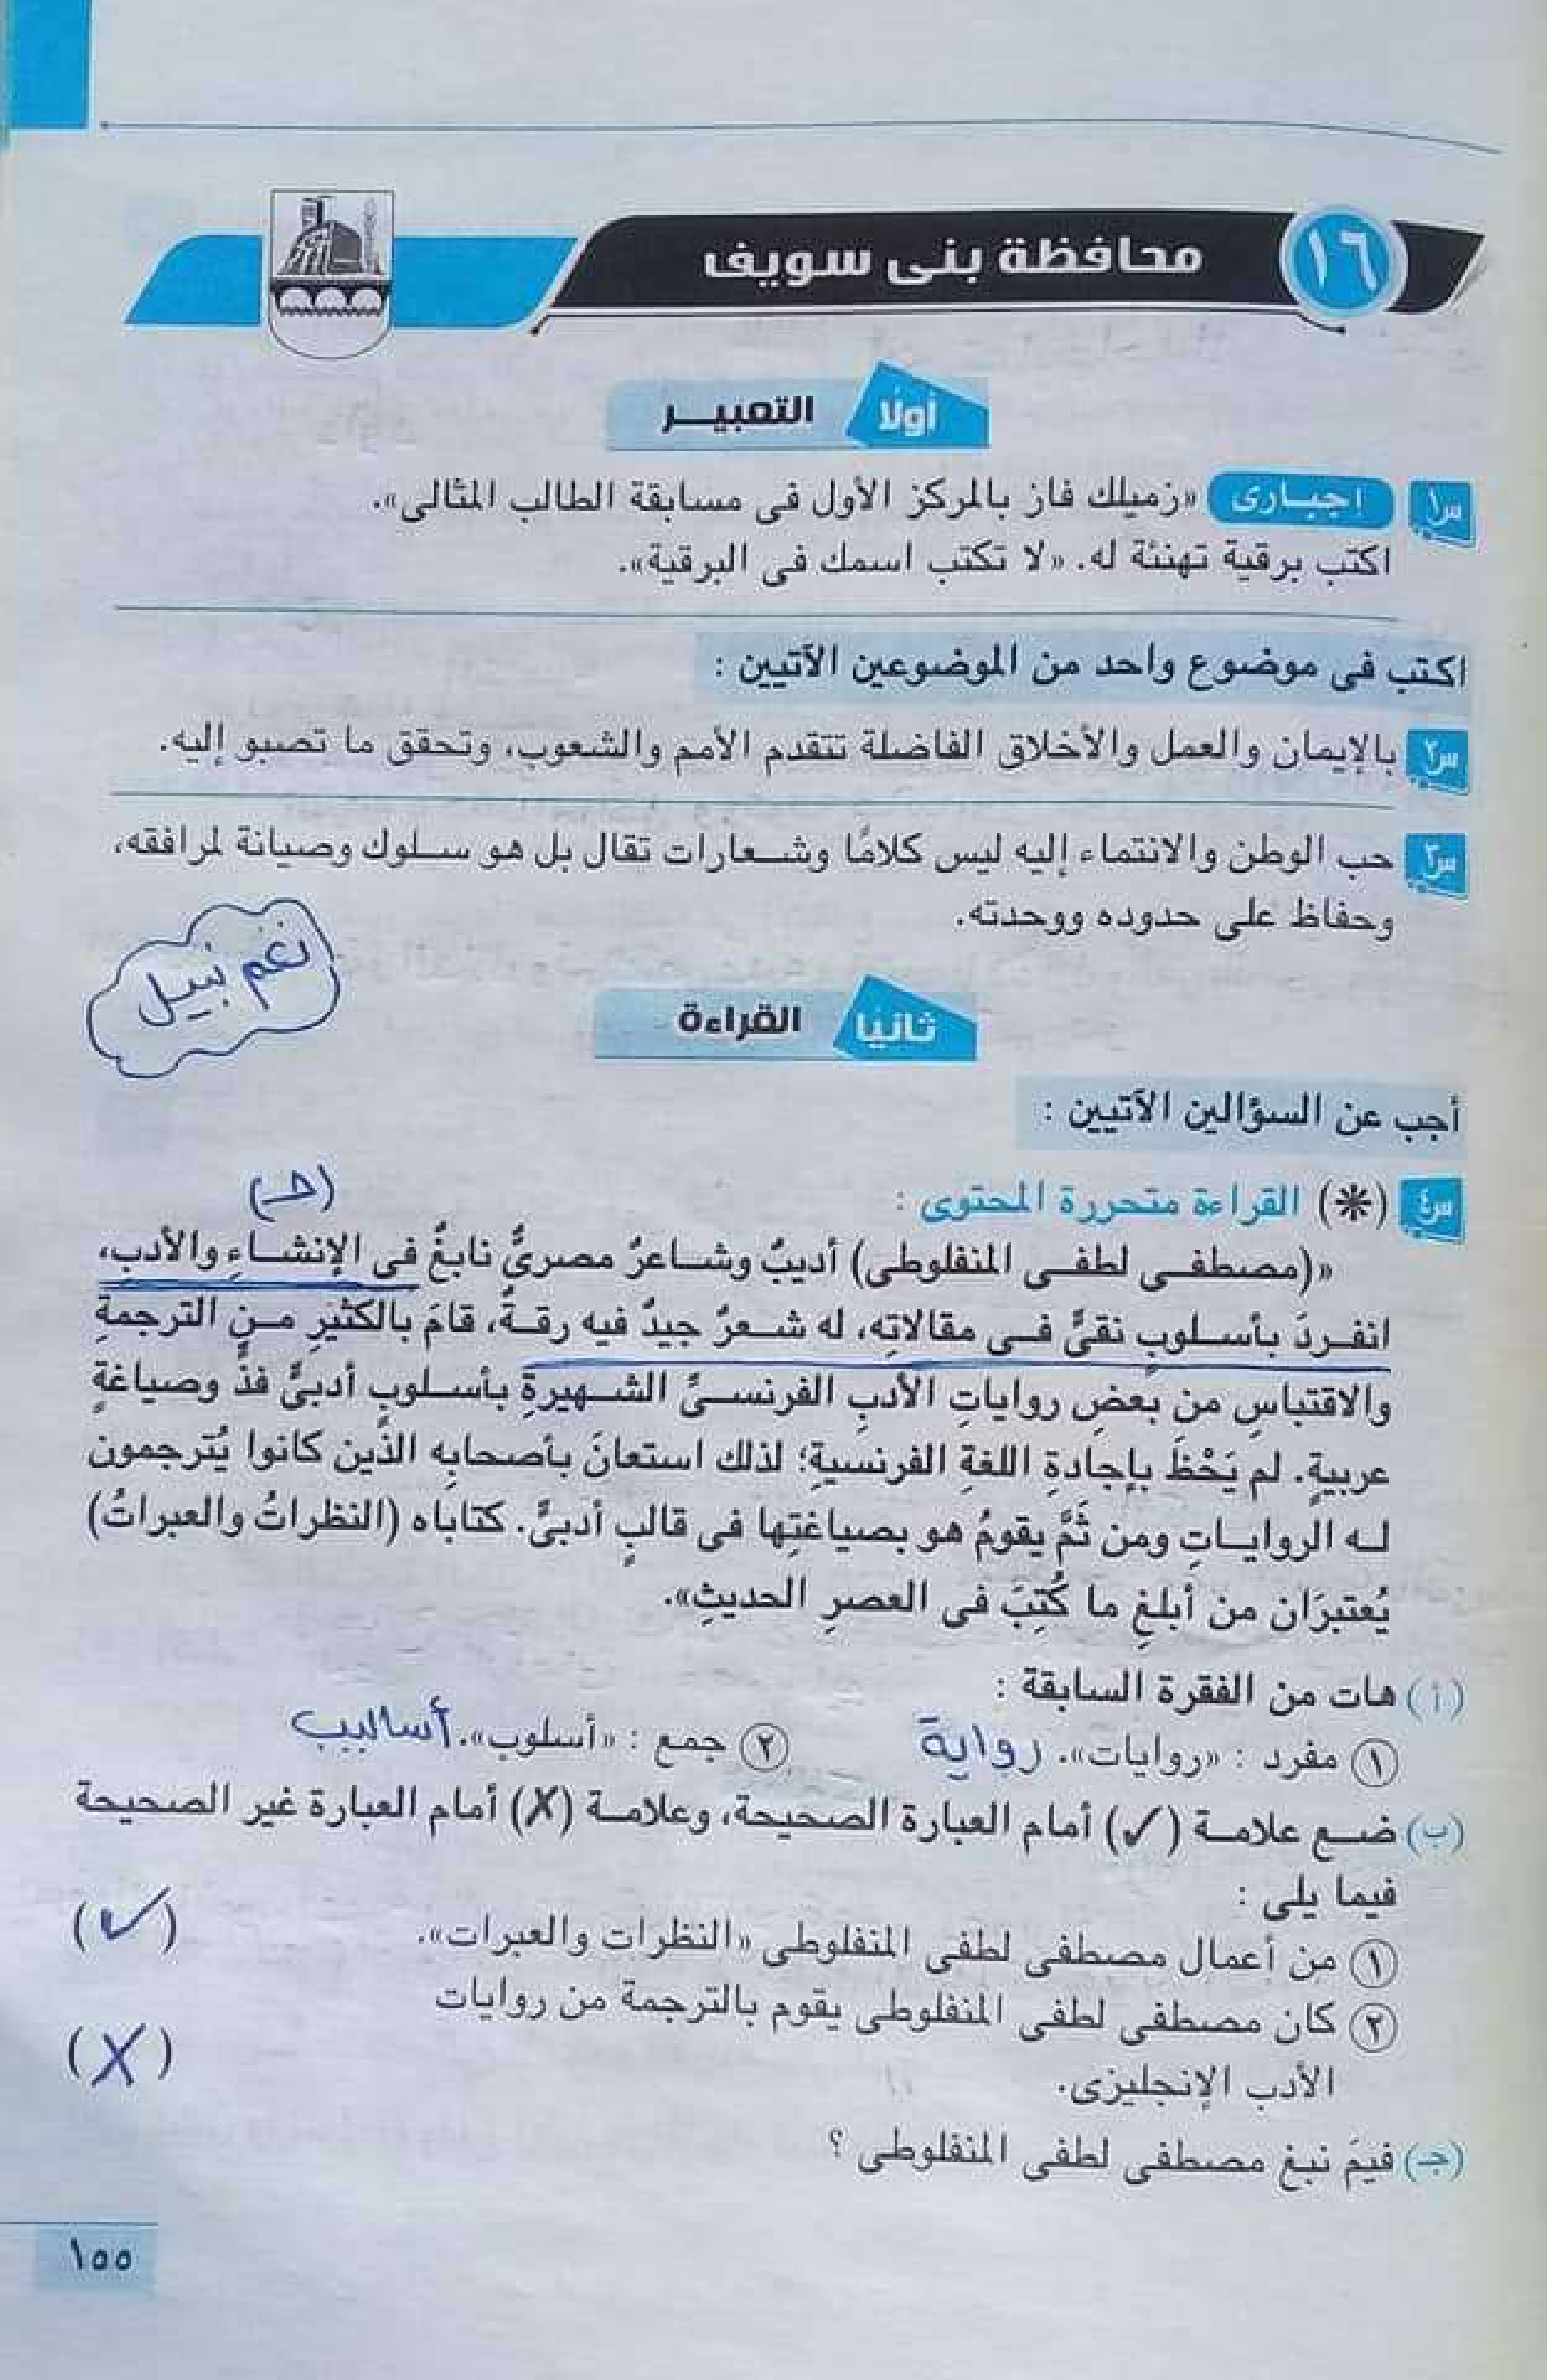 ١٦ محافظة بنى سويف
أولًا التعبير
س١ إجبارى «زميلك فاز بالمركز الأول فى مسابقة الطالب المثالى».
اكتب برقية تهنئة له. «لا تكتب اسمك فى البرقية».
اكتب فى موضوع واحد من الموضوعين الآتيين :
س٢ بالإيمان والعمل والأخلاق الفاضلة تتقدم الأمم والشعوب، وتحقق ما تصبو إليه.
س٣ حب الوطن والانتماء إليه ليس كلامًا وشعارات تقال بل هو سلوك وصيانة لمرافقه،
وحفاظ على حدوده ووحدته.
نغم نبيل
ثانيًا القراءة
أجب عن السؤالين الآتيين :
س٤ (*) القراءة متحررة المحتوى :
(جـ)
«(مصطفى لطفى المنفلوطى) أديبٌ وشاعرٌ مصرىٌّ نابغٌ فى الإنشاءِ والأدبِ،
انفردَ بأسلوبٍ نقىٍّ فى مقالاتِه، له شعرٌ جيدٌ فيه رقةٌ، قامَ بالكثيرِ من الترجمةِ
والاقتباسِ من بعضِ رواياتِ الأدبِ الفرنسىِّ الشهيرةِ بأسلوبٍ أدبىٍّ فذٍّ وصياغةٍ
عربيةٍ. لم يَحْظَ بإجادةِ اللغةِ الفرنسيةِ؛ لذلك استعانَ بأصحابِه الذين كانوا يُترجمون
له الرواياتِ ومن ثَمَّ يقومُ هو بصياغتِها فى قالبٍ أدبىٍّ. كتاباه (النظراتُ والعبراتُ)
يُعتبرَان من أبلغِ ما كُتِبَ فى العصرِ الحديثِ».
(أ) هات من الفقرة السابقة :
١ مفرد : «روايات». رواية ٢ جمع : «أسلوب». أساليب
(ب) ضع علامة (✓) أمام العبارة الصحيحة، وعلامة (X) أمام العبارة غير الصحيحة
فيما يلى :
١ من أعمال مصطفى لطفى المنفلوطى «النظرات والعبرات». (✓)
٢ كان مصطفى لطفى المنفلوطى يقوم بالترجمة من روايات
الأدب الإنجليزى. (X)
(جـ) فيمَ نبغ مصطفى لطفى المنفلوطى ؟
١٥٥